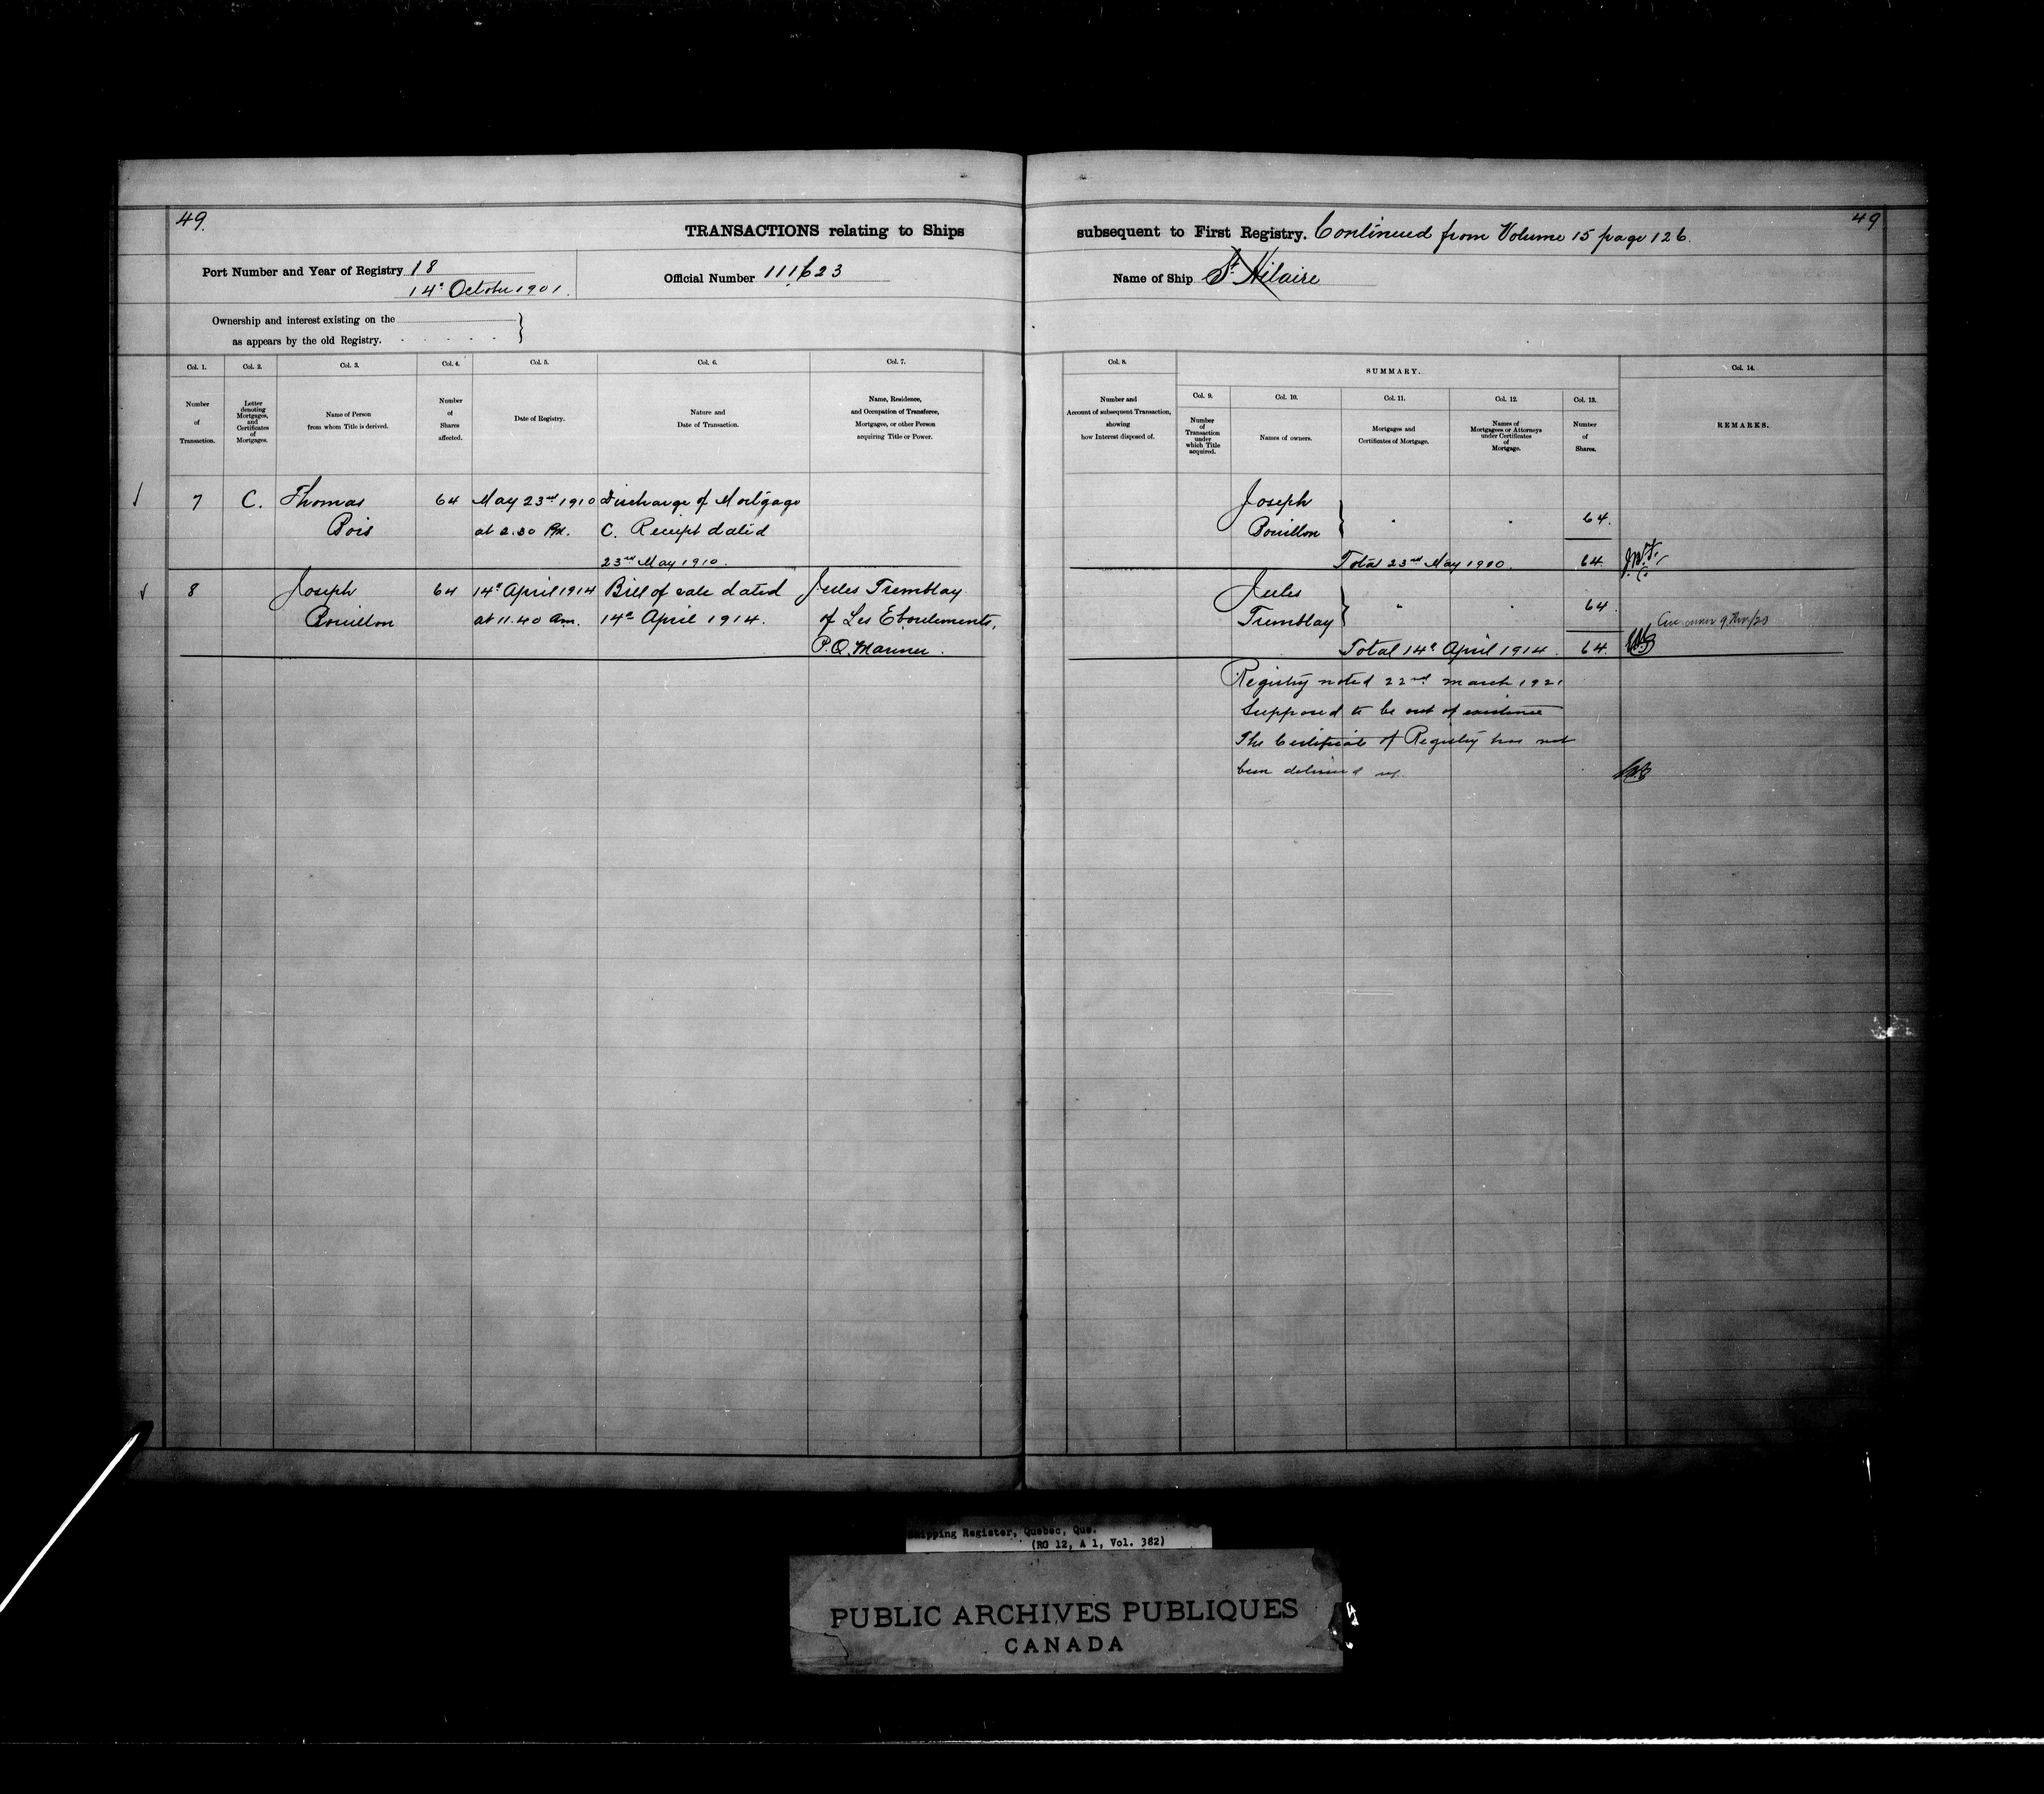 49.
TRANSACTIONS relating to Ships
Port Number and Year of Registry 18
14th October 1901.
Official Number 111623
Ownership and interest existing on the
as appears by the old Registry.
Col. 1.
Number
of
Transaction.
Col. 2.
Letter
denoting
Mortgages,
and
Certificates
of
Mortgages.
Col. 3.
Name of Person
from whom Title is derived.
Col. 4.
Number
of
Shares
affected.
Col. 5.
Date of Registry.
Col. 6.
Nature and
Date of Transaction.
Col. 7.
Name, Residence,
and Occupation of Transferee,
Mortgagee, or other Person
acquiring Title or Power.
7 C. Thomas 64 May 23rd 1910 Discharge of Mortgage
Bois at 2.30 P.M. C. Receipt dated
23rd May 1910.
8 Joseph 64 14th April 1914 Bill of sale dated Jules Tremblay
Bouillon at 11.40 am. 14th April 1914. of Les Eboulements,
P.Q. Mariner.
49
subsequent to First Registry. Continued from Volume 15 page 126.
Name of Ship St. Hilaire
Col. 8.
Number and
Account of subsequent Transaction,
showing
how Interest disposed of.
SUMMARY.
Col. 9.
Number
of
Transaction
under
which Title
acquired.
Col. 10.
Names of owners.
Col. 11.
Mortgages and
Certificates of Mortgage.
Col. 12.
Names of
Mortgagees or Attorneys
under Certificates
of
Mortgage.
Col. 13.
Number
of
Shares.
Col. 14.
REMARKS.
Joseph
Bouillon 64.
Total 23rd May 1910. 64.
Jules
Tremblay 64.
Total 14th April 1914. 64.
Registry noted 22nd March 1921
Supposed to be out of existence
The Certificate of Registry has not
been delivered up.
Shipping Register, Quebec, Que.
(RG 12, A 1, Vol. 382)
PUBLIC ARCHIVES PUBLIQUES
CANADA